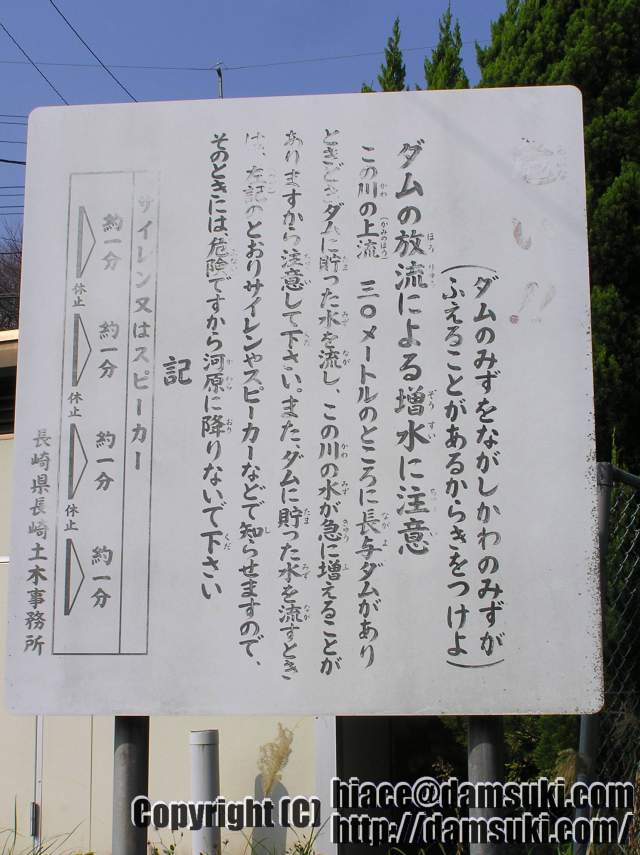 (ダムのみずをながしかわのみずが
ふえることがあるからきをつけよ)
ダムの放流による増水に注意
この川の上流(かみのほう)三〇メートルのところに長与ダムがあり
ときどきダムに貯った水を流し、この川の水が急に増えることが
ありますから注意して下さい。また、ダムに貯った水を流すとき
は、左記のとおりサイレンやスピーカーなどで知らせますので、
そのときには、危険ですから河原に降りないで下さい
記
サイレン又はスピーカー
約一分 休止 約一分 休止 約一分 休止 約一分
長崎県長崎土木事務所
Copyright (C) hiace@damsuki.com
http://damsuki.com/